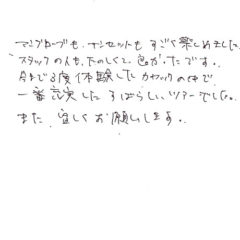 マングローブも、サンセットもすごく楽しめました。
スタッフの人も、たのしくて、良かったです。
今まで3度体験したカヤックの中で
一番充実したすばらしいツアーでした。
また、宜しくお願いします。